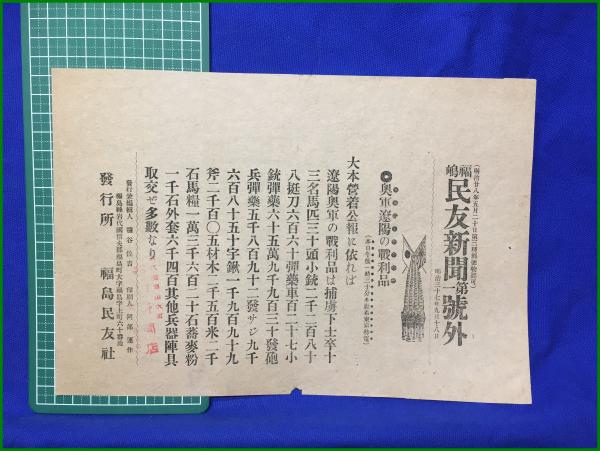 (明治廿八年九月二十日第三種郵便物認可)
福嶋民友新聞第號外
明治三十七年九月十八日
◎奧軍遼陽の戰利品
大本營着公報に依れば
遼陽奧軍の戰利品は捕虜下士卒十
三名馬匹三十頭小銃二千二百八十
八挺刀六百六十彈藥車百二十七小
銃彈藥六十五萬九千九百三十發砲
兵彈藥五千八百九十二發サジ九千
六百八十五十字鍬一千九百七十九
斧二千百〇五材木二千五百米二千
石馬糧一萬三千六百二十石蕎麥粉
一千石外套六千四百其他兵器陣具
取交ぜ多數なり
發行兼編輯人 印刷人 阿部
發行所 福島民友社